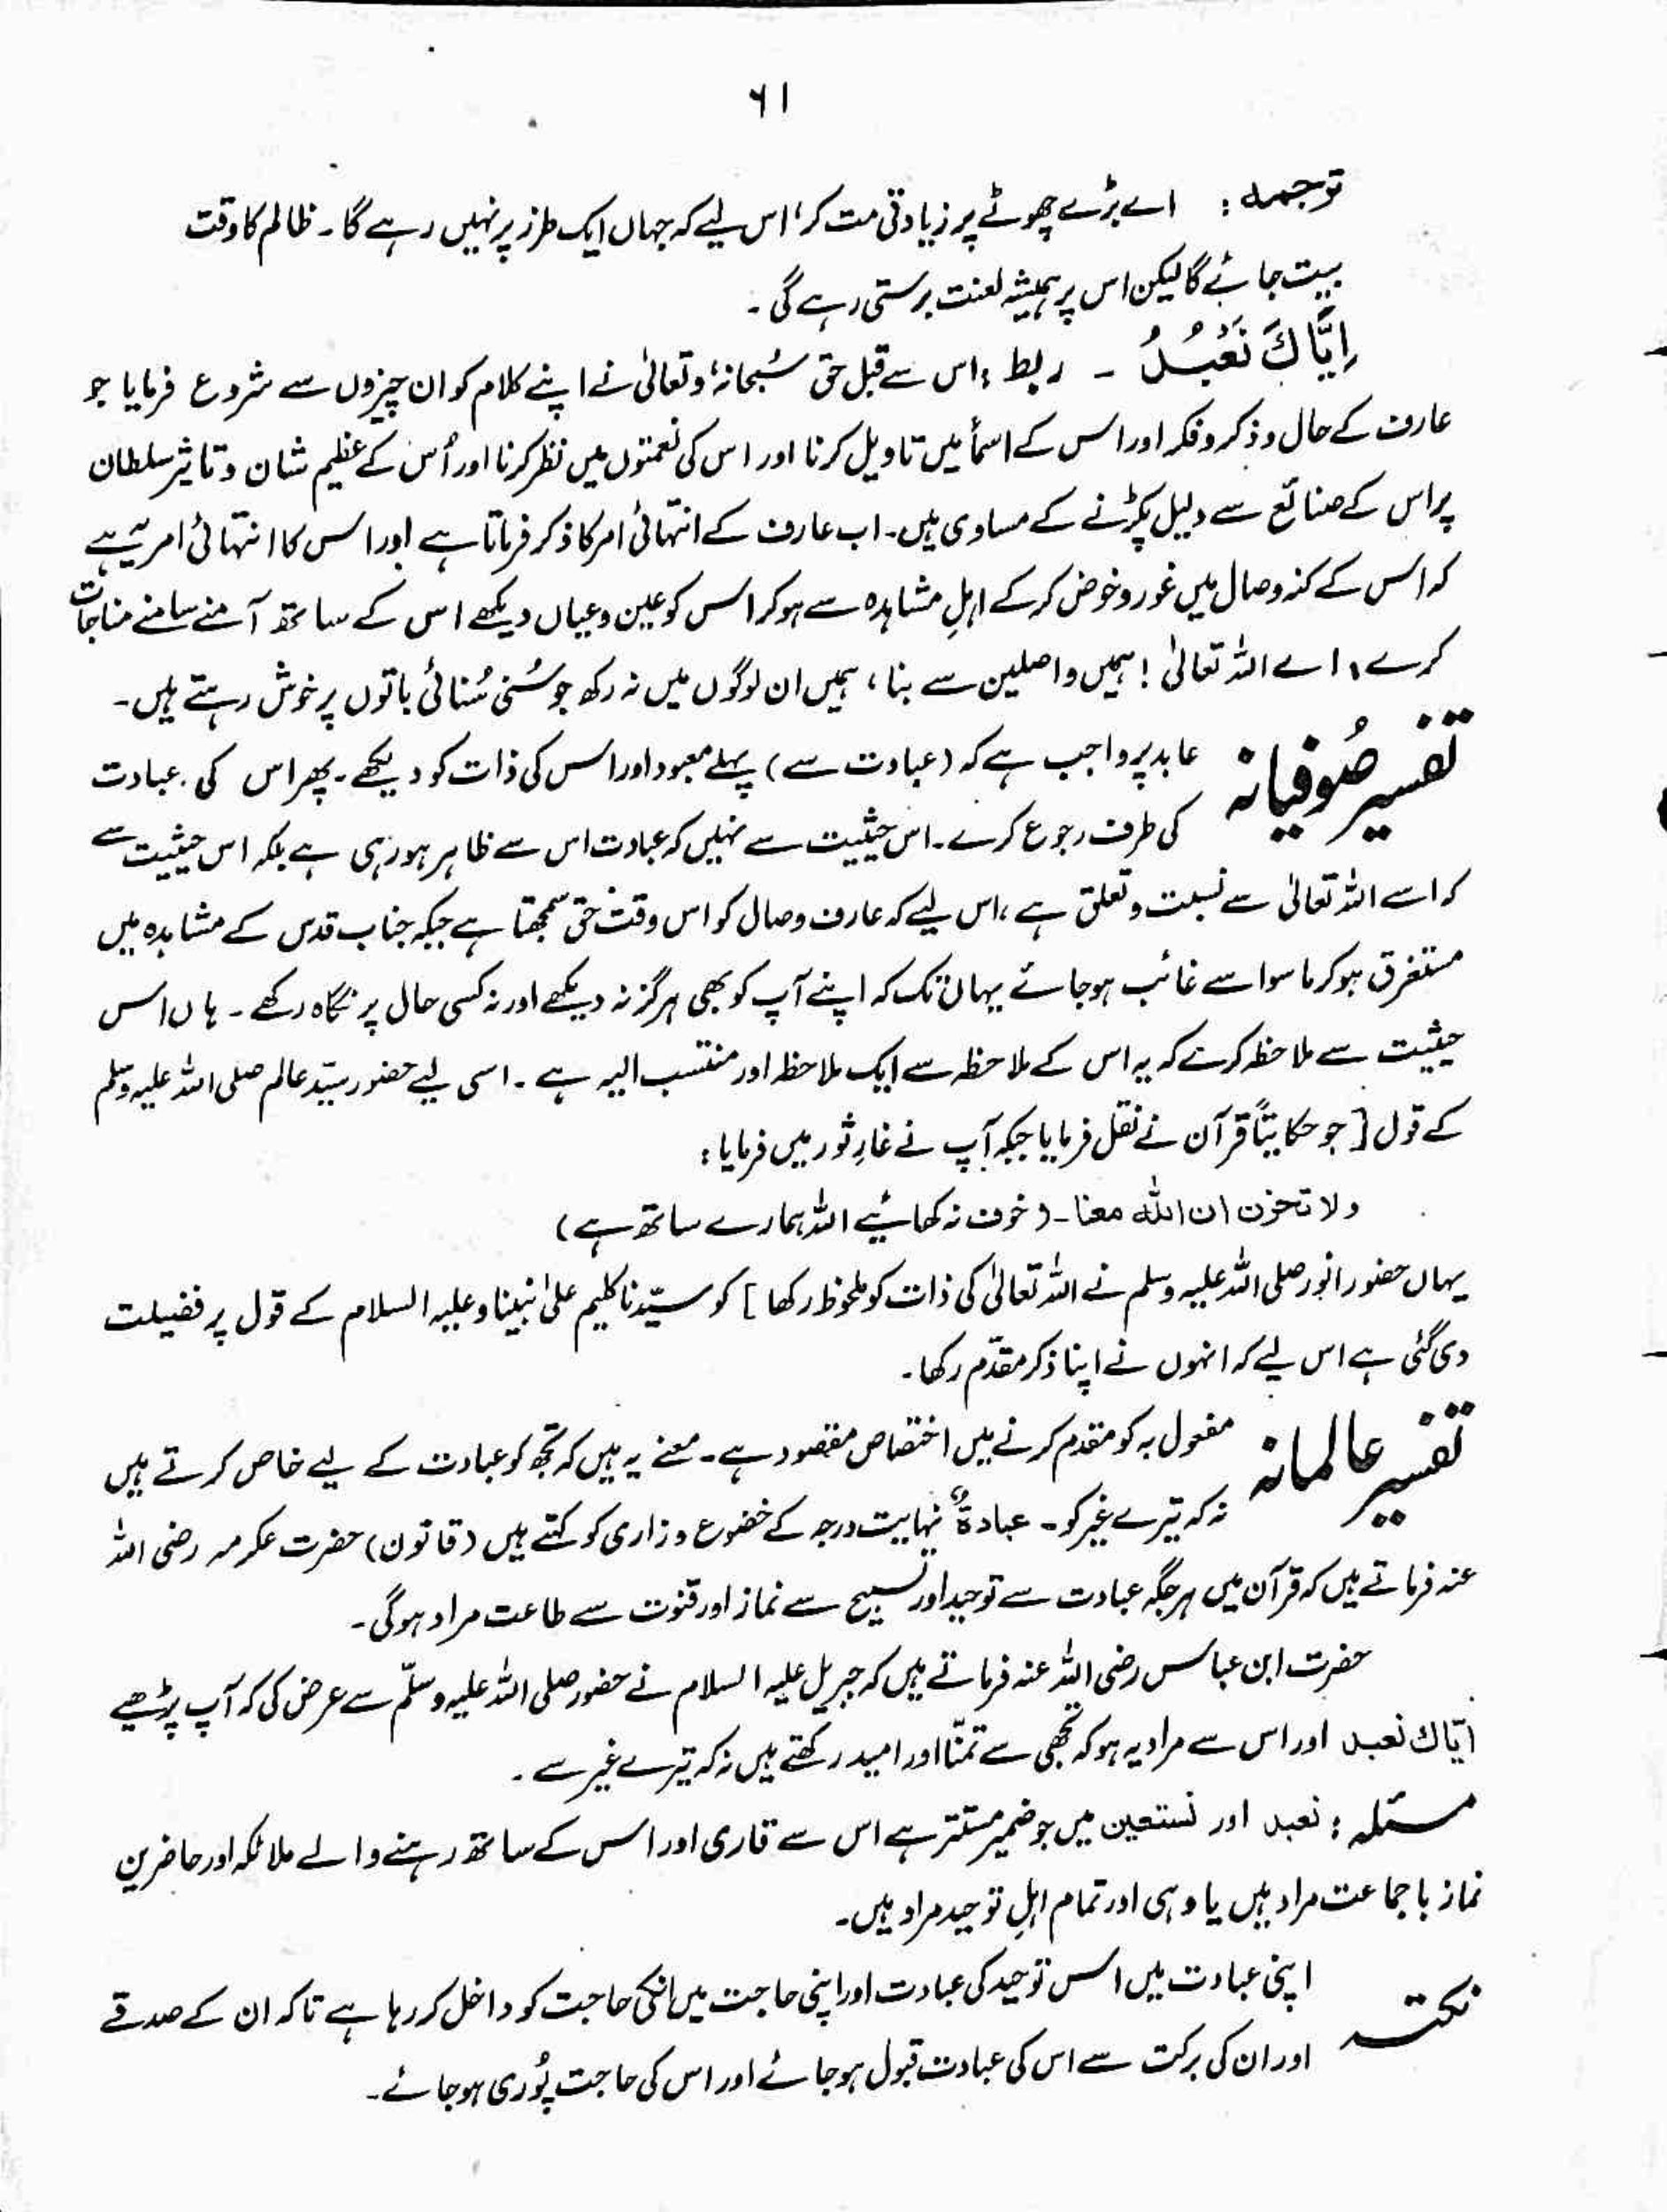 ۶۱
ترجمہ : اے بڑے چھوٹے پر زیادتی مت کر، اس لیے کہ جہاں ایک طرز پر نہیں رہے گا۔ ظالم کا وقت
بیت جائے گا لیکن اس پر ہمیشہ لعنت برستی رہے گی۔
اِیَّاكَ نَعْبُدُ ۔ ربط : اس سے قبل حق سُبحانہٗ وتعالیٰ نے اپنے کلام کو ان چیزوں سے شروع فرمایا جو
عارف کے حال و ذکر و فکر اور اس کے اسمأ میں تاویل کرنا اور اس کی نعمتوں میں نظر کرنا اور اُس کے عظیم شان و تاثیر سلطان
پر اس کے صنائع سے دلیل پکڑنے کے مساوی ہیں۔ اب عارف کے انتہائی امر کا ذکر فرماتا ہے اور اس کا انتہائی امر یہ ہے
کہ اس کے کنہ وصال میں غور و خوض کرکے اہلِ مشاہدہ سے ہوکر اس کو عین وعیاں دیکھے اس کے ساتھ آمنے سامنے مناجات
کرے، اے اللہ تعالیٰ! ہمیں واصلین سے بنا، ہمیں ان لوگوں میں نہ رکھ جو سُنی سُنائی باتوں پر خوش رہتے ہیں۔
تفسیر صُوفیانہ عابد پر واجب ہے کہ (عبادت سے) پہلے معبود اور اس کی ذات کو دیکھے۔ پھر اس کی عبادت
کی طرف رجوع کرے۔ اس حیثیت سے نہیں کہ عبادت اس سے ظاہر ہورہی ہے بلکہ اس حیثیت سے
کہ اسے اللہ تعالیٰ سے نسبت و تعلق ہے، اس لیے کہ عارف وصال کو اس وقت حق سمجھتا ہے جبکہ جناب قدس کے مشاہدہ میں
مستغرق ہوکر ماسوا سے غائب ہوجائے یہاں تک کہ اپنے آپ کو بھی ہرگز نہ دیکھے اور نہ کسی حال پر نگاہ رکھے۔ ہاں اس
حیثیت سے ملاحظہ کرے کہ یہ اس کے ملاحظہ سے ایک ملاحظہ اور منتسب الیہ ہے۔ اسی لیے حضور سیّدِ عالم صلی اللہ علیہ وسلم
کے قول [ جو حکایتاً قرآن نے نقل فرمایا جبکہ آپ نے غارِ ثور میں فرمایا :
ولا تحزن ان اللہ معنا۔ (خوف نہ کھائیے اللہ ہمارے ساتھ ہے)
یہاں حضور انور صلی اللہ علیہ وسلم نے اللہ تعالیٰ کی ذات کو ملحوظ رکھا ] کو سیّدنا کلیم علیٰ نبینا وعلیہ السلام کے قول پر فضیلت
دی گئی ہے اس لیے کہ انہوں نے اپنا ذکر مقدّم رکھا۔
تفسیر عالمانہ مفعول بہ کو مقدم کرنے میں اختصاص مقصود ہے۔ معنے یہ ہیں کہ تجھ کو عبادت کے لیے خاص کرتے ہیں
نہ کہ تیرے غیر کو۔ عبادةٌ نہایت درجہ کے خضوع و زاری کو کہتے ہیں (قانون) حضرت عکرمہ رضی اللہ
عنہ فرماتے ہیں کہ قرآن میں ہر جگہ عبادت سے توحید اور تسبیح سے نماز اور قنوت سے طاعت مراد ہوگی۔
حضرت ابن عباس رضی اللہ عنہ فرماتے ہیں کہ جبریل علیہ السلام نے حضور صلی اللہ علیہ وسلّم سے عرض کی کہ آپ پڑھیے
ایّاك نعبد اور اس سے مراد یہ ہو کہ تجھی سے تمنّا اور امید رکھتے ہیں نہ کہ تیرے غیر سے۔
مسئلہ : نعبد اور نستعین میں جو ضمیر مستتر ہے اس سے قاری اور اس کے ساتھ رہنے والے ملائکہ اور حاضرینِ
نماز با جماعت مراد ہیں یا وہی اور تمام اہلِ توحید مراد ہیں۔
نکتہ اپنی عبادت میں اس توحید کی عبادت اور اپنی حاجت میں انکی حاجت کو داخل کر رہا ہے تاکہ ان کے صدقے
اور ان کی برکت سے اس کی عبادت قبول ہوجائے اور اس کی حاجت پُوری ہوجائے۔